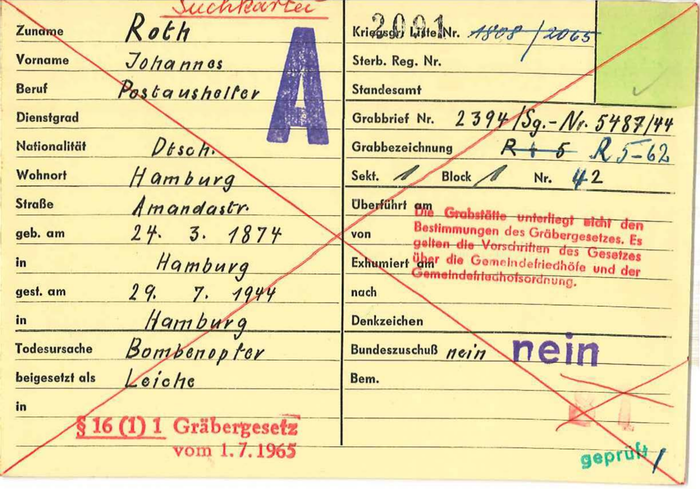 Suchkartei
Zuname Roth
Vorname Johannes
Beruf Postaushelfer
Dienstgrad
Nationalität Dtsch.
Wohnort Hamburg
Straße Amandastr.
geb. am 24. 3. 1874
in Hamburg
gest. am 29. 7. 1944
in Hamburg
Todesursache Bombenopfer
beigesetzt als Leiche
in
§ 16 (1) 1 Gräbergesetz
vom 1.7.1965
A
2001
Kriegsgr. Liste Nr. 1808 / 2065
Sterb. Reg. Nr.
Standesamt
Grabbrief Nr. 2394/Sg.-Nr. 5487/44
Grabbezeichnung R + 5 R 5-62
Sekt. 1 Block 1 Nr. 42
Überführt am
von
Exhumiert am
nach
Die Grabstätte unterliegt nicht den
Bestimmungen des Gräbergesetzes. Es
gelten die Vorschriften des Gesetzes
über die Gemeindefriedhöfe und der
Gemeindefriedhofsordnung.
Denkzeichen
Bundeszuschuß nein nein
Bem.
geprüft